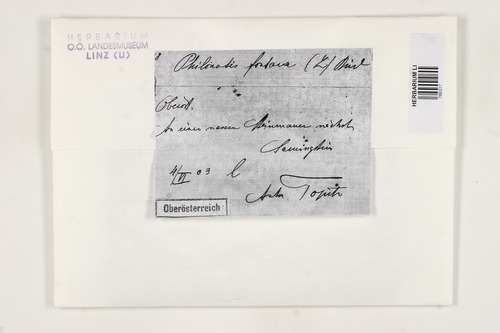 HERBARIUM
O.Ö. LANDESMUSEUM
LINZ (LI)
Philonotis fontana (L) Brid
Oberöst.
An einer nassen Steinmauer nächst
Sarmingstein
4/VI 03
Anton Topitz
Oberösterreich
HERBARIUM LI